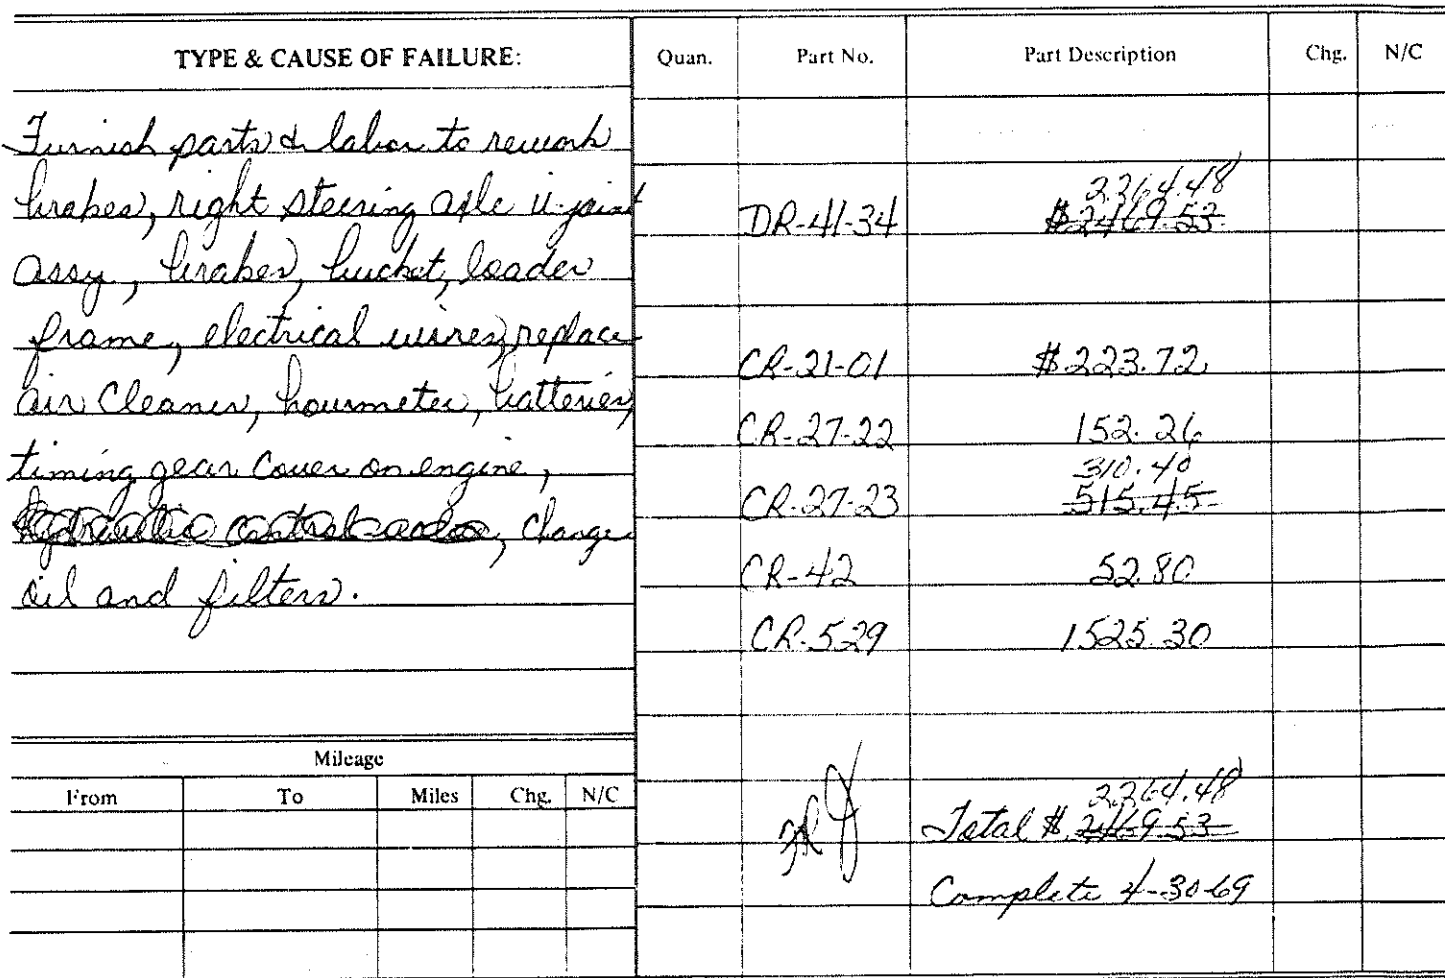 TYPE & CAUSE OF FAILURE:
Furnish parts & labor to rework
brakes, right steering axle u-joint
assy, brakes, bucket, loader
frame, electrical wires, replace
air cleaner, hourmeter, batteries,
timing gear cover on engine,
hydraulic control , change
oil and filters.
Mileage
From To Miles Chg. N/C
Quan. Part No. Part Description Chg. N/C
2264.48
DR-41-34 $2469.53
CR-21-01 $223.72
CR-27-22 152.26
310.40
CR-27-23 515.45
CR-42 52.80
CR-529 1525.30
2264.48
Total $ 2469.53
Complete 4-30-69